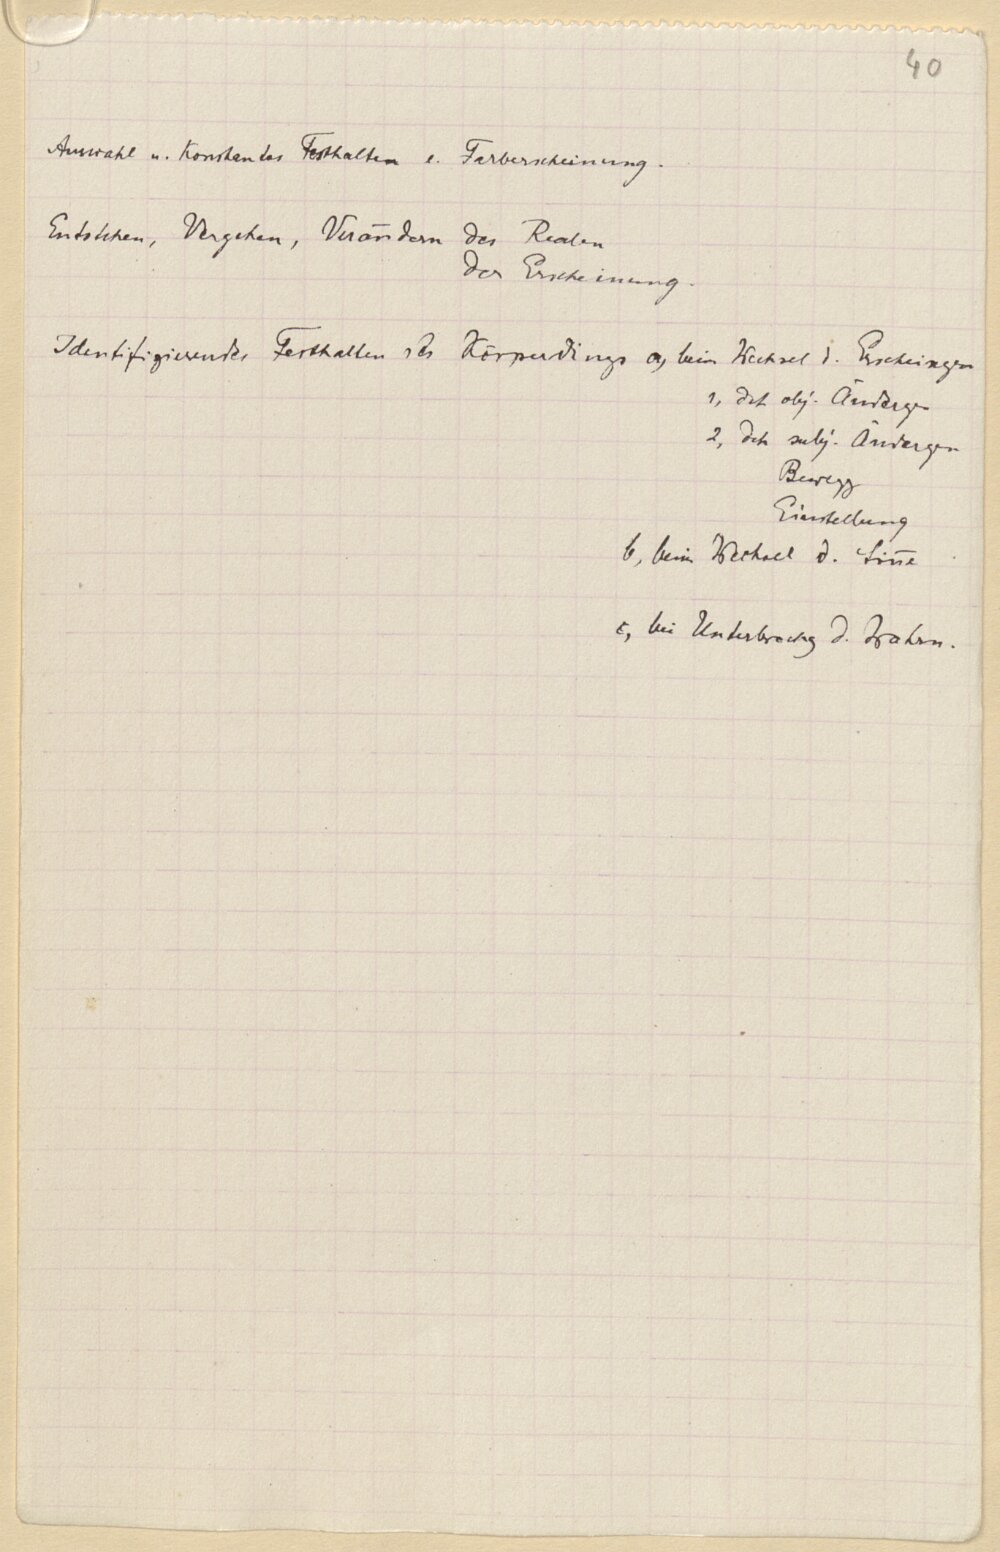 40
Auswahl u. konstantes Festhalten e. Farberscheinung.
Entstehen, Vergehen, Verändern des Realen
der Erscheinung.
Identifizierendes Festhalten des Körperdings a, beim Wechsel d. Erscheingen
1, dch obj. Ändergen
2, dch subj. Ändergen
Bewegg
Einstellung
b, beim Wechsel d. Sin̄e
c, bei Unterbrechg d. Wahrn.